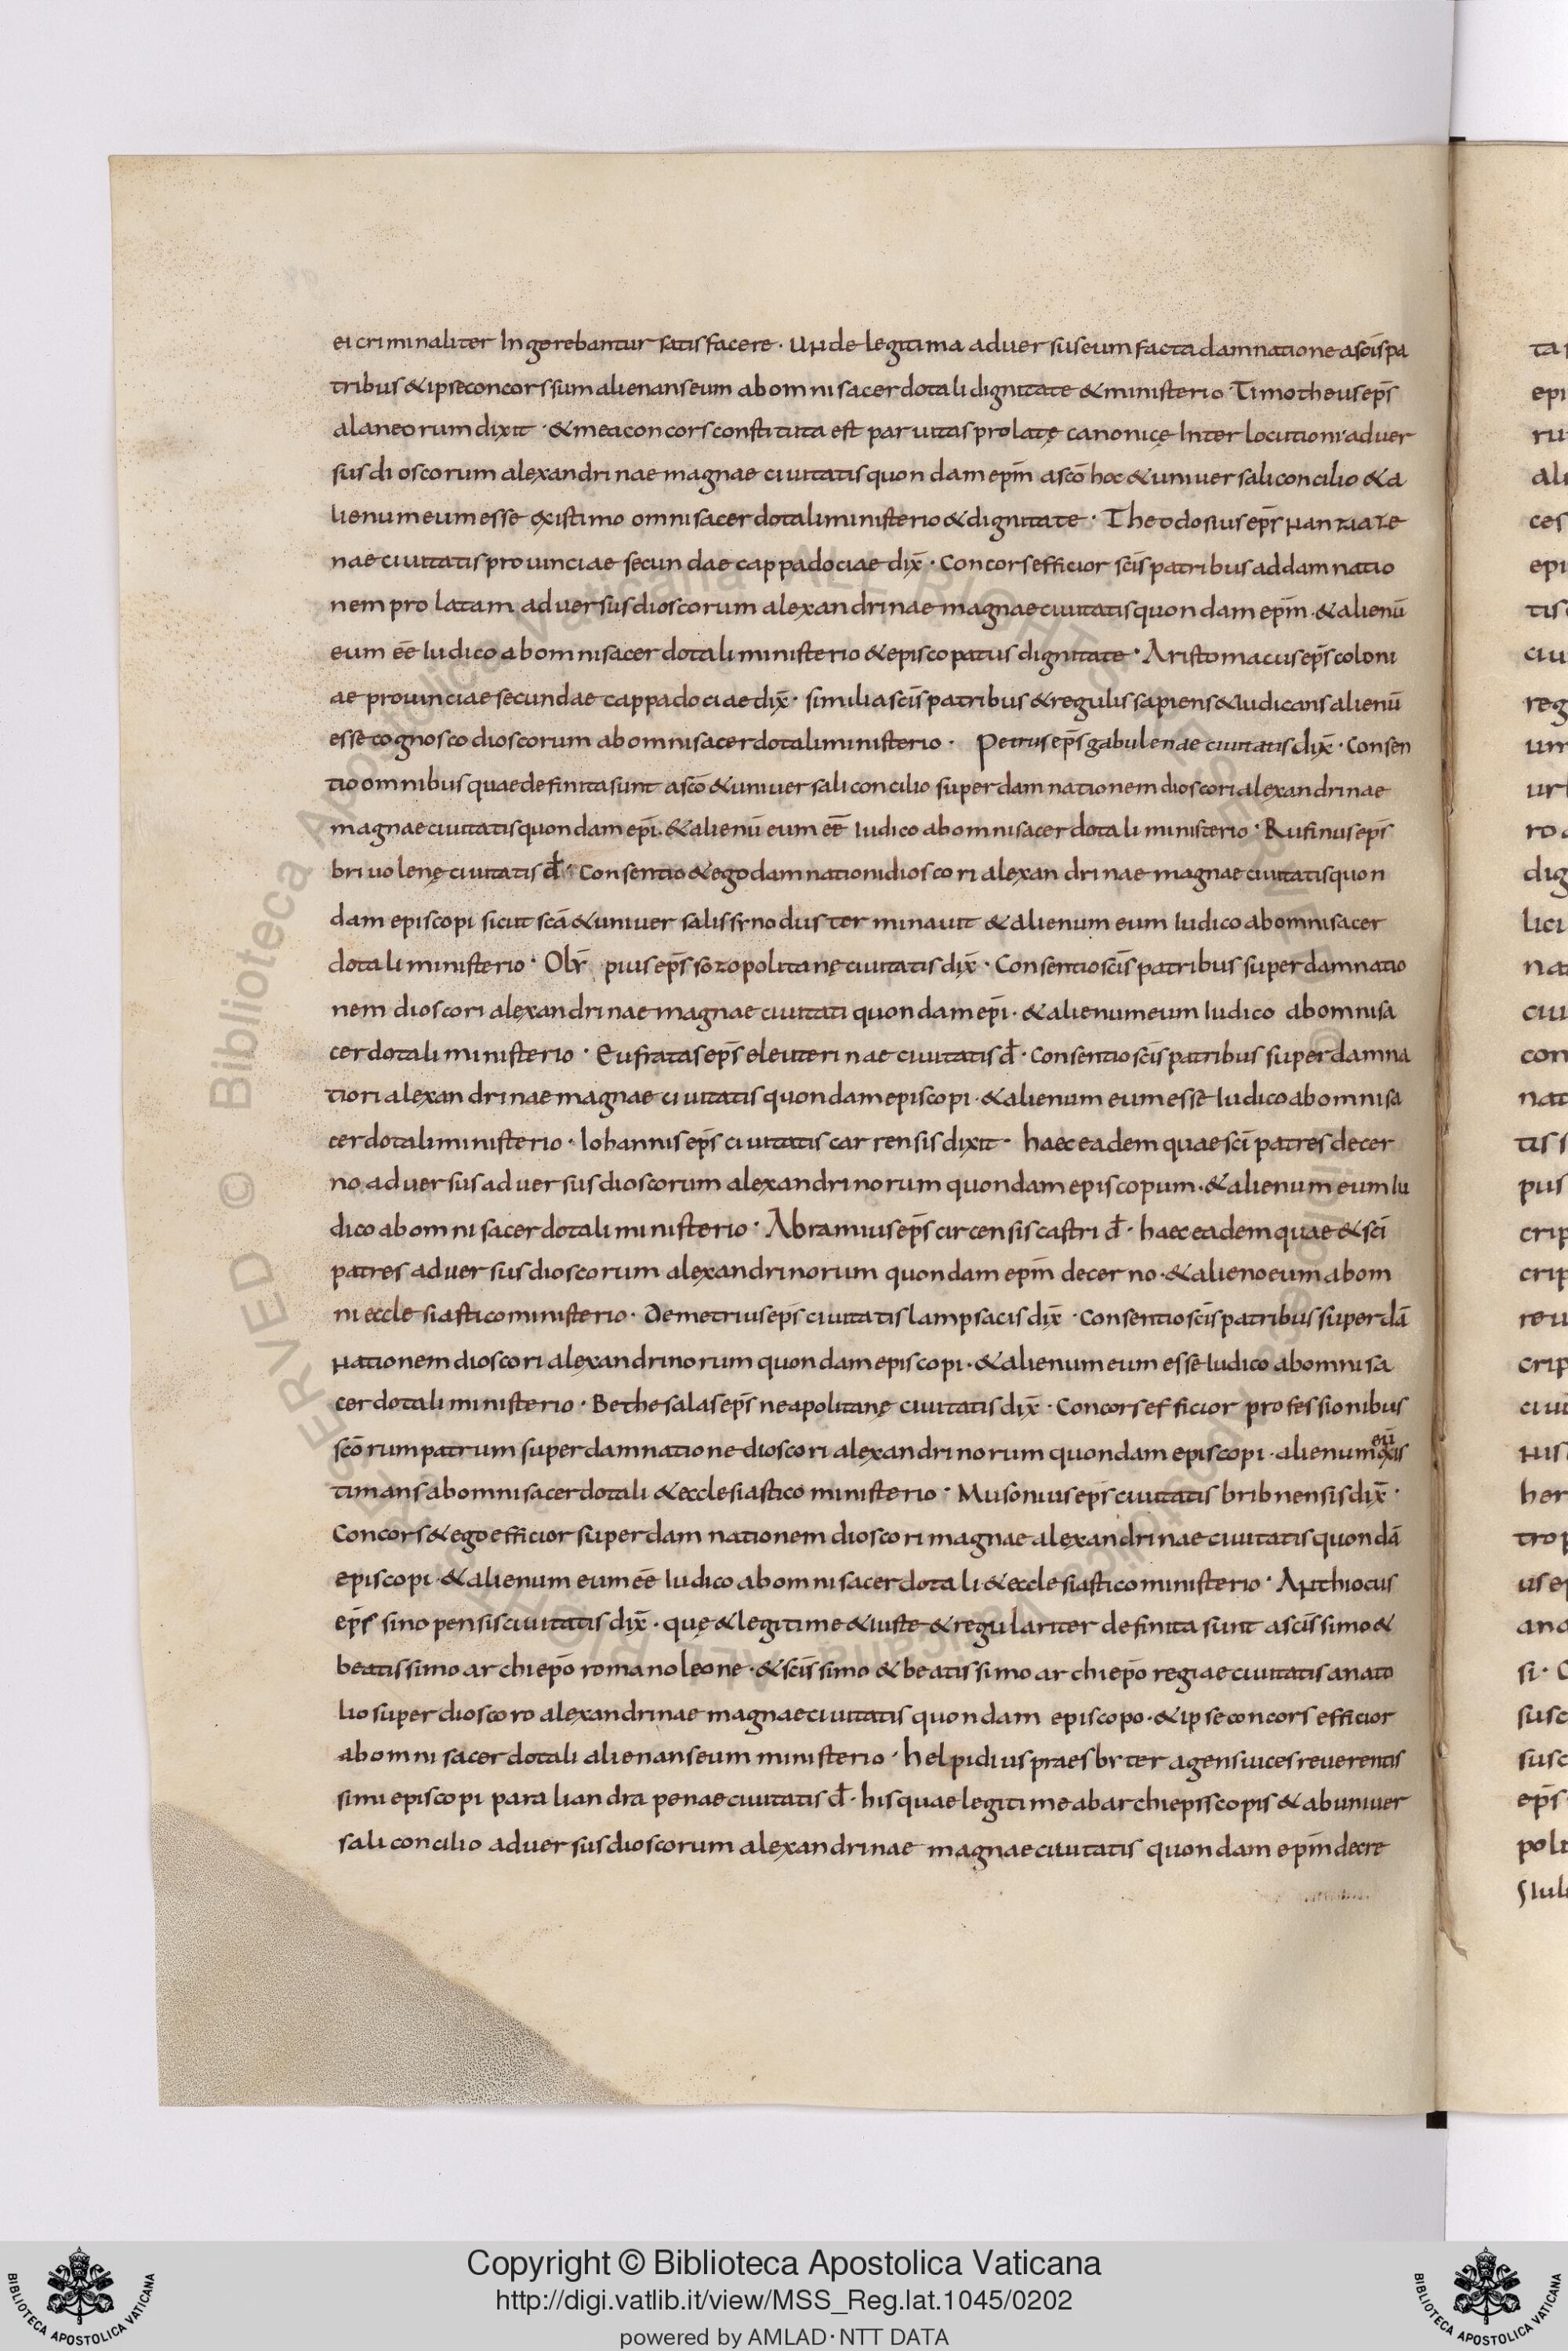 ei criminaliter Ingerebantur satisfacere · Unde legitima aduersus eum facta damnatione a scīs pa
tribus & ipse concors sum alienans eum ab omni sacerdotali dignitate & ministerio · Timotheus ep̄s
alaneorum dixit · & mea concors constituta est paruitas prolatę canonicę Interlocutioni aduer
sus dioscorum alexandrinae magnae ciuitatis quondam ep̄m a scō hoc & uniuersali concilio & a
lienum eum esse ęxistimo omni sacerdotali ministerio & dignitate · Theodosius ep̄s nanziaze
nae ciuitatis prouinciae secundae cappadociae dix̄ · Concors efficior scīs patribus ad damnatio
nem prolatam aduersus dioscorum alexandrinae magnae ciuitatis quondam ep̄m · & alienū
eum eē Iudico ab omni sacerdotali ministerio & episcopatus dignitate · Aristomacus ep̄s coloni
ae prouinciae secundae cappadociae dix̄ · similia scīs patribus & regulis sapiens & Iudicans alienū
esse cognosco dioscorum ab omni sacerdotali ministerio · Petrus ep̄s gabulenae ciuitatis dix̄ · Consen
tio omnibus quae definita sunt a scō & uniuersali concilio super damnationem dioscori alexandrinae
magnae ciuitatis quondam ep̄i · & alienū eum eē Iudico ab omni sacerdotali ministerio · Rufinus ep̄s
briuolenę ciuitatis d̄ · Consentio & ego damnationi dioscori alexandrinae magnae ciuitatis quon
dam episcopi sicut scā & uniuersalis synodus terminauit & alienum eum Iudico ab omni sacer
dotali ministerio · Oly pius ep̄s sozopolitanę ciuitatis dix̄ · Consentio scīs patribus super damnatio
nem dioscori alexandrinae magnae ciuitati quondam ep̄i · & alienum eum Iudico ab omni sa
cerdotali ministerio · Eufratas ep̄s eleuterinae ciuitatis d̄ · Consentio scīs patribus super damna
tiori alexandrinae magnae ciuitatis quondam episcopi · & alienum eum esse Iudico ab omni sa
cerdotali ministerio · Iohannis ep̄s ciuitatis carrensis dixit · haec eadem quae scī patres decer
no aduersus aduersus dioscorum alexandrinorum quondam episcopum · & alienum eum Iu
dico ab omni sacerdotali ministerio · Abramius ep̄s circensis castri d̄ · haec eadem quae & scī
patres aduersus dioscorum alexandrinorum quondam ep̄m decerno · & alieno eum ab om
ni ecclesiastico ministerio · Demetrius ep̄s ciuitatis lampsacis dix̄ · Consentio scīs patribus super dā
nationem dioscori alexandrinorum quondam episcopi · & alienum eum esse Iudico ab omni sa
cerdotali ministerio · Bethesalas ep̄s neapolitanę ciuitatis dix̄ · Concors efficior professionibus
scōrum patrum super damnatione dioscori alexandrinorum quondam episcopi · alienum eū ęxis
timans ab omni sacerdotali & ecclesiastico ministerio · Musonius ep̄s ciuitatis bribnensis dix̄ ·
Concors & ego efficior super damnationem dioscori magnae alexandrinae ciuitatis quondā
episcopi · & alienum eum eē Iudico ab omni sacerdotali & ecclesiastico ministerio · Anthiocus
ep̄s sinopensis ciuitatis dix̄ · quę & legitime & iuste & regulariter definita sunt a scīssimo &
beatissimo archiep̄o romano leone · & scīssimo & beatissimo archiep̄o regiae ciuitatis anato
lio super dioscoro alexandrinae magnae ciuitatis quondam episcopo · & ipse concors efficior
ab omni sacerdotali alienans eum ministerio · helpidius praesbyter agens uices reuerentis
simi episcopi paralian drapenae ciuitatis d̄ · his quae legitime ab archiepiscopis & ab uniuer
sali concilio aduersus dioscorum alexandrinae magnae ciuitatis quondam ep̄m decre
Copyright © Biblioteca Apostolica Vaticana
http://digi.vatlib.it/view/MSS_Reg.lat.1045/0202
powered by AMLAD·NTT DATA
BIBLIOTECA APOSTOLICA VATICANA
BIBLIOTECA APOSTOLICA VATICANA